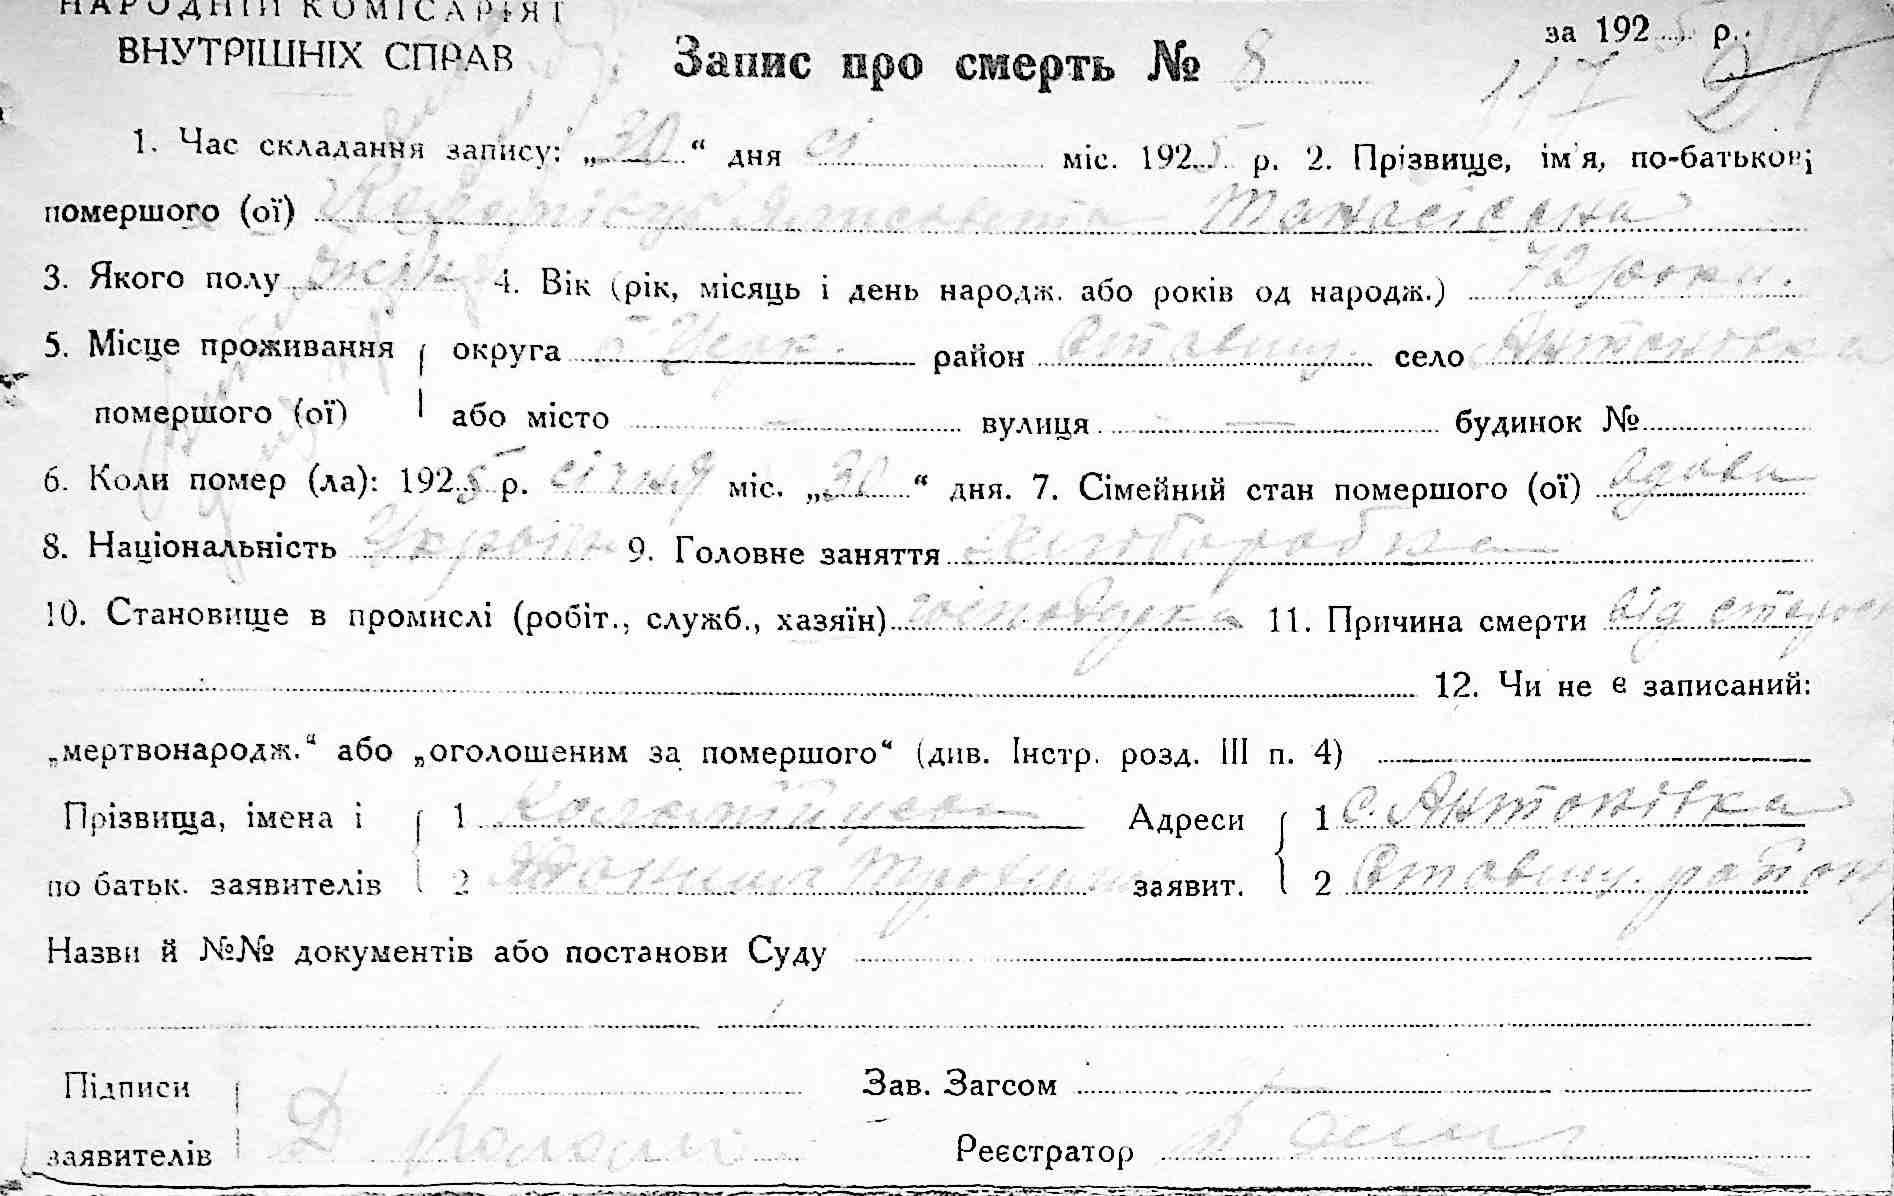 НАРОДНІЙ КОМІСАРІЯТ
ВНУТРІШНІХ СПРАВ
Запис про смерть № 8
за 1925 р.
117
1. Час складання запису: „30“ дня сі міс. 1925 р. 2. Прізвище, ім'я, по-батькові
помершого (ої)
3. Якого полу жін 4. Вік (рік, місяць і день народж. або років од народж.) роки.
5. Місце проживання { округа Б Церк. район Ставищ. село Антоновка
помершого (ої) або місто — вулиця — будинок №
6. Коли помер (ла): 1925 р. січня міс. „30“ дня. 7. Сімейний стан помершого (ої) вдова
8. Національність Україн 9. Головне заняття Хліборобка
10. Становище в промислі (робіт., служб., хазяїн) 11. Причина смерти від старос
12. Чи не є записаний:
„мертвонародж.“ або „оголошеним за помершого“ (див. Інстр. розд. III п. 4)
Прізвища, імена і { 1 Адреси { 1 с. Антонівка
по батьк. заявителів 2 заявит. 2 Ставищ. район
Назви й №№ документів або постанови Суду
Підписи Зав. Загсом
заявителів Д Реєстратор